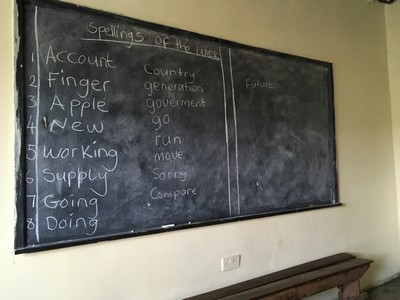 Spellings of the week
1 Account
2 Finger
3 Apple
4 New
5 Working
6 Supply
7 Going
8 Doing
Country
generation
goverment
go
run
move
Sorry
Compare
Future